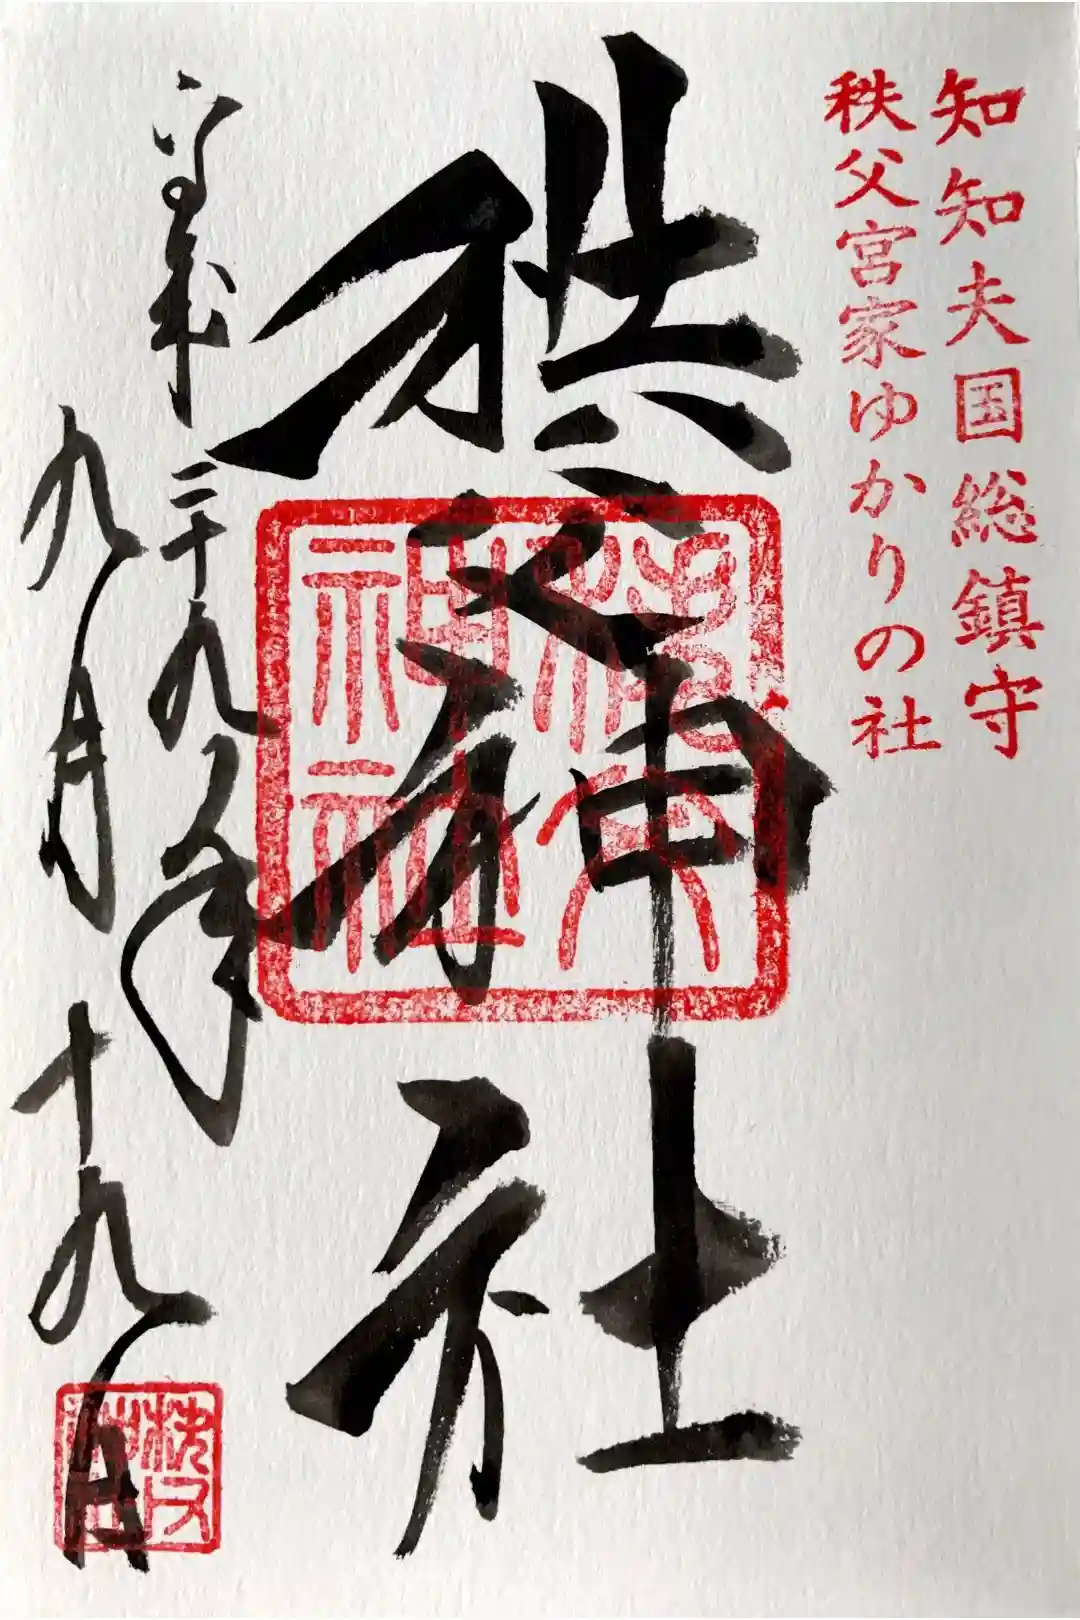 知知夫国総鎮守
秩父宮家ゆかりの社
秩父神社
秩父神社
平成二十九年
九月十九日
秩父神社